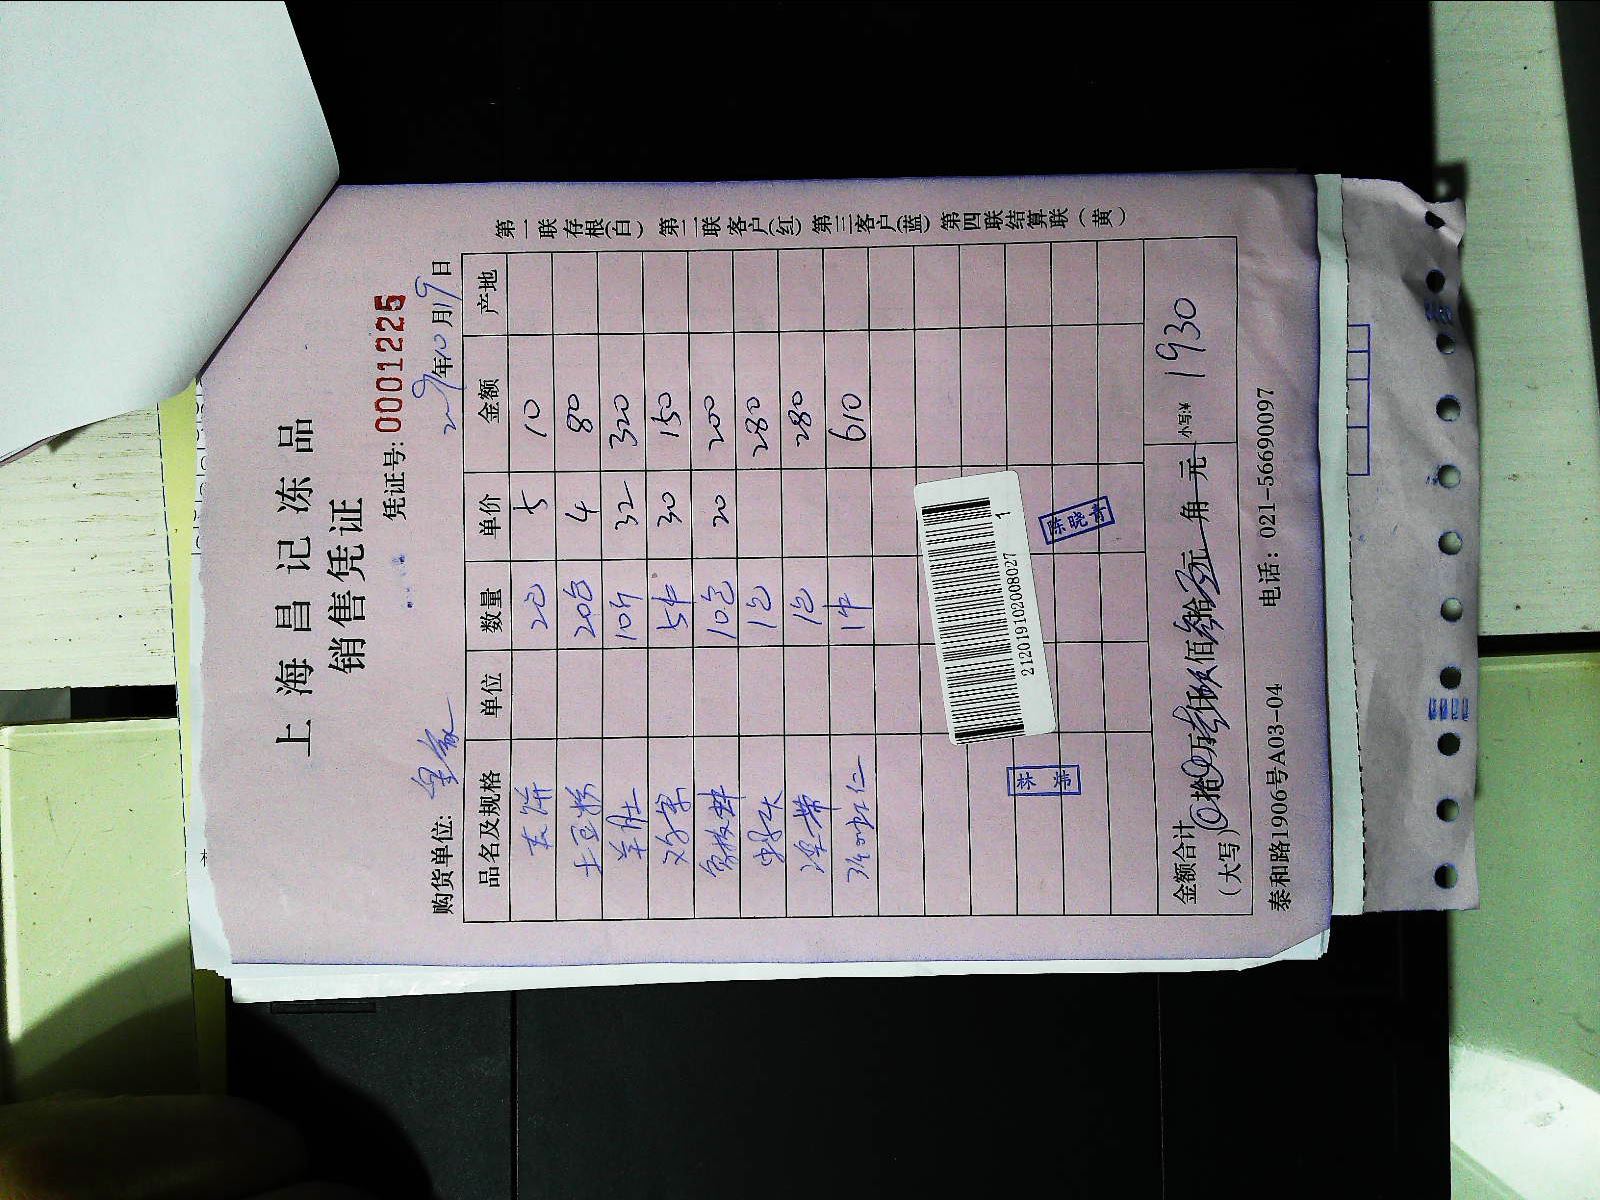 上海昌记冻品
销售凭证
凭证号: 0001225
购货单位: 皇家 2019年10月19日
品名及规格 单位 数量 单价 金额 产地
2包 5 10
土豆粉 20包 4 80
羊肚 10斤 32 320
5个 30 150
10包 20 200
1包 280
1包 280
虾仁 1个 610
212019102008027
1
金额合计
(大写) 拾 万 仟 佰 拾 元 角 元 小写:¥ 1930
泰和路1906号A03-04 电话: 021-56690097
第一联存根(白) 第二联客户(红) 第三客户(蓝) 第四联结算联(黄)